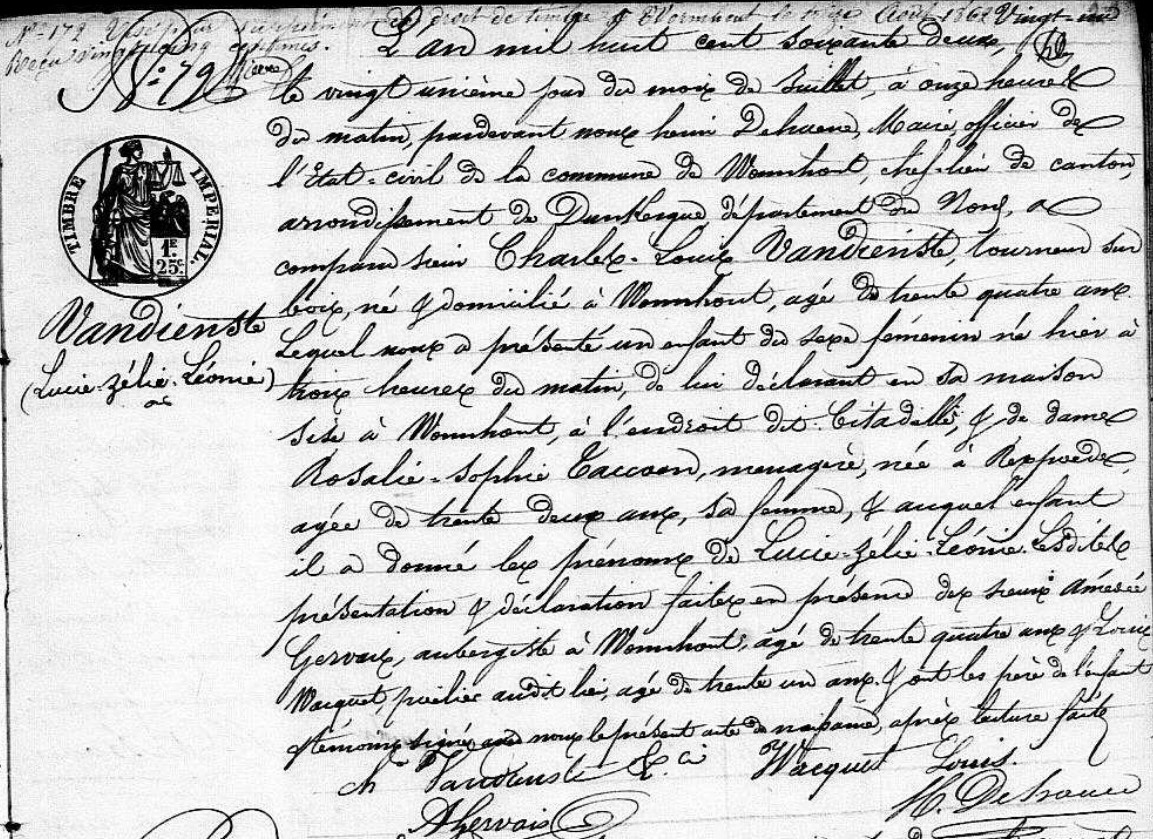 N° 172 Visé pour supplément de droit de timbre à Wormhout le treize Août 1862 Vingt-un
Reçu vingt cinq centimes.
L'an mil huit cent soixante deux,
N°. 79
le vingt unième jour du mois de Juillet, à onze heures
du matin, pardevant nous henri Dehaene, Maire, officier de
l'Etat-civil de la commune de Wormhout, chef-lieu de canton,
arrondissement de Dunkerque département du Nord, a
comparu sieur Charles-Louis Vandienste, tourneur sur
bois, né & domicilié à Wormhout, agé de trente quatre ans.
Lequel nous a présenté un enfant du sexe féminin né hier à
trois heures du matin, de lui déclarant en sa maison
sise à Wormhout, à l'endroit dit: Citadelle, & de dame
Rosalie-Sophie Taccoen, menagère, née à Rexpoëde,
agée de trente deux ans, sa femme, & auquel enfant
il a donné les prénoms de Lucie-Zélie-Léonie. Lesdites
présentation & déclaration faites en présence des sieurs Amédée
Gervais, aubergiste à Wormhout, agé de trente quatre ans & Louis
Wacquet, audit lieu, agé de trente un ans. & ont les père de l'enfant
& témoins signé avec nous le présent acte de naissance, après lecture faite
TIMBRE IMPERIAL.
1F.
25c.
Vandienste
(Lucie-Zélie-Léonie)
ch Vandienste Wacquet Louis.
A Gervais H. Dehaene